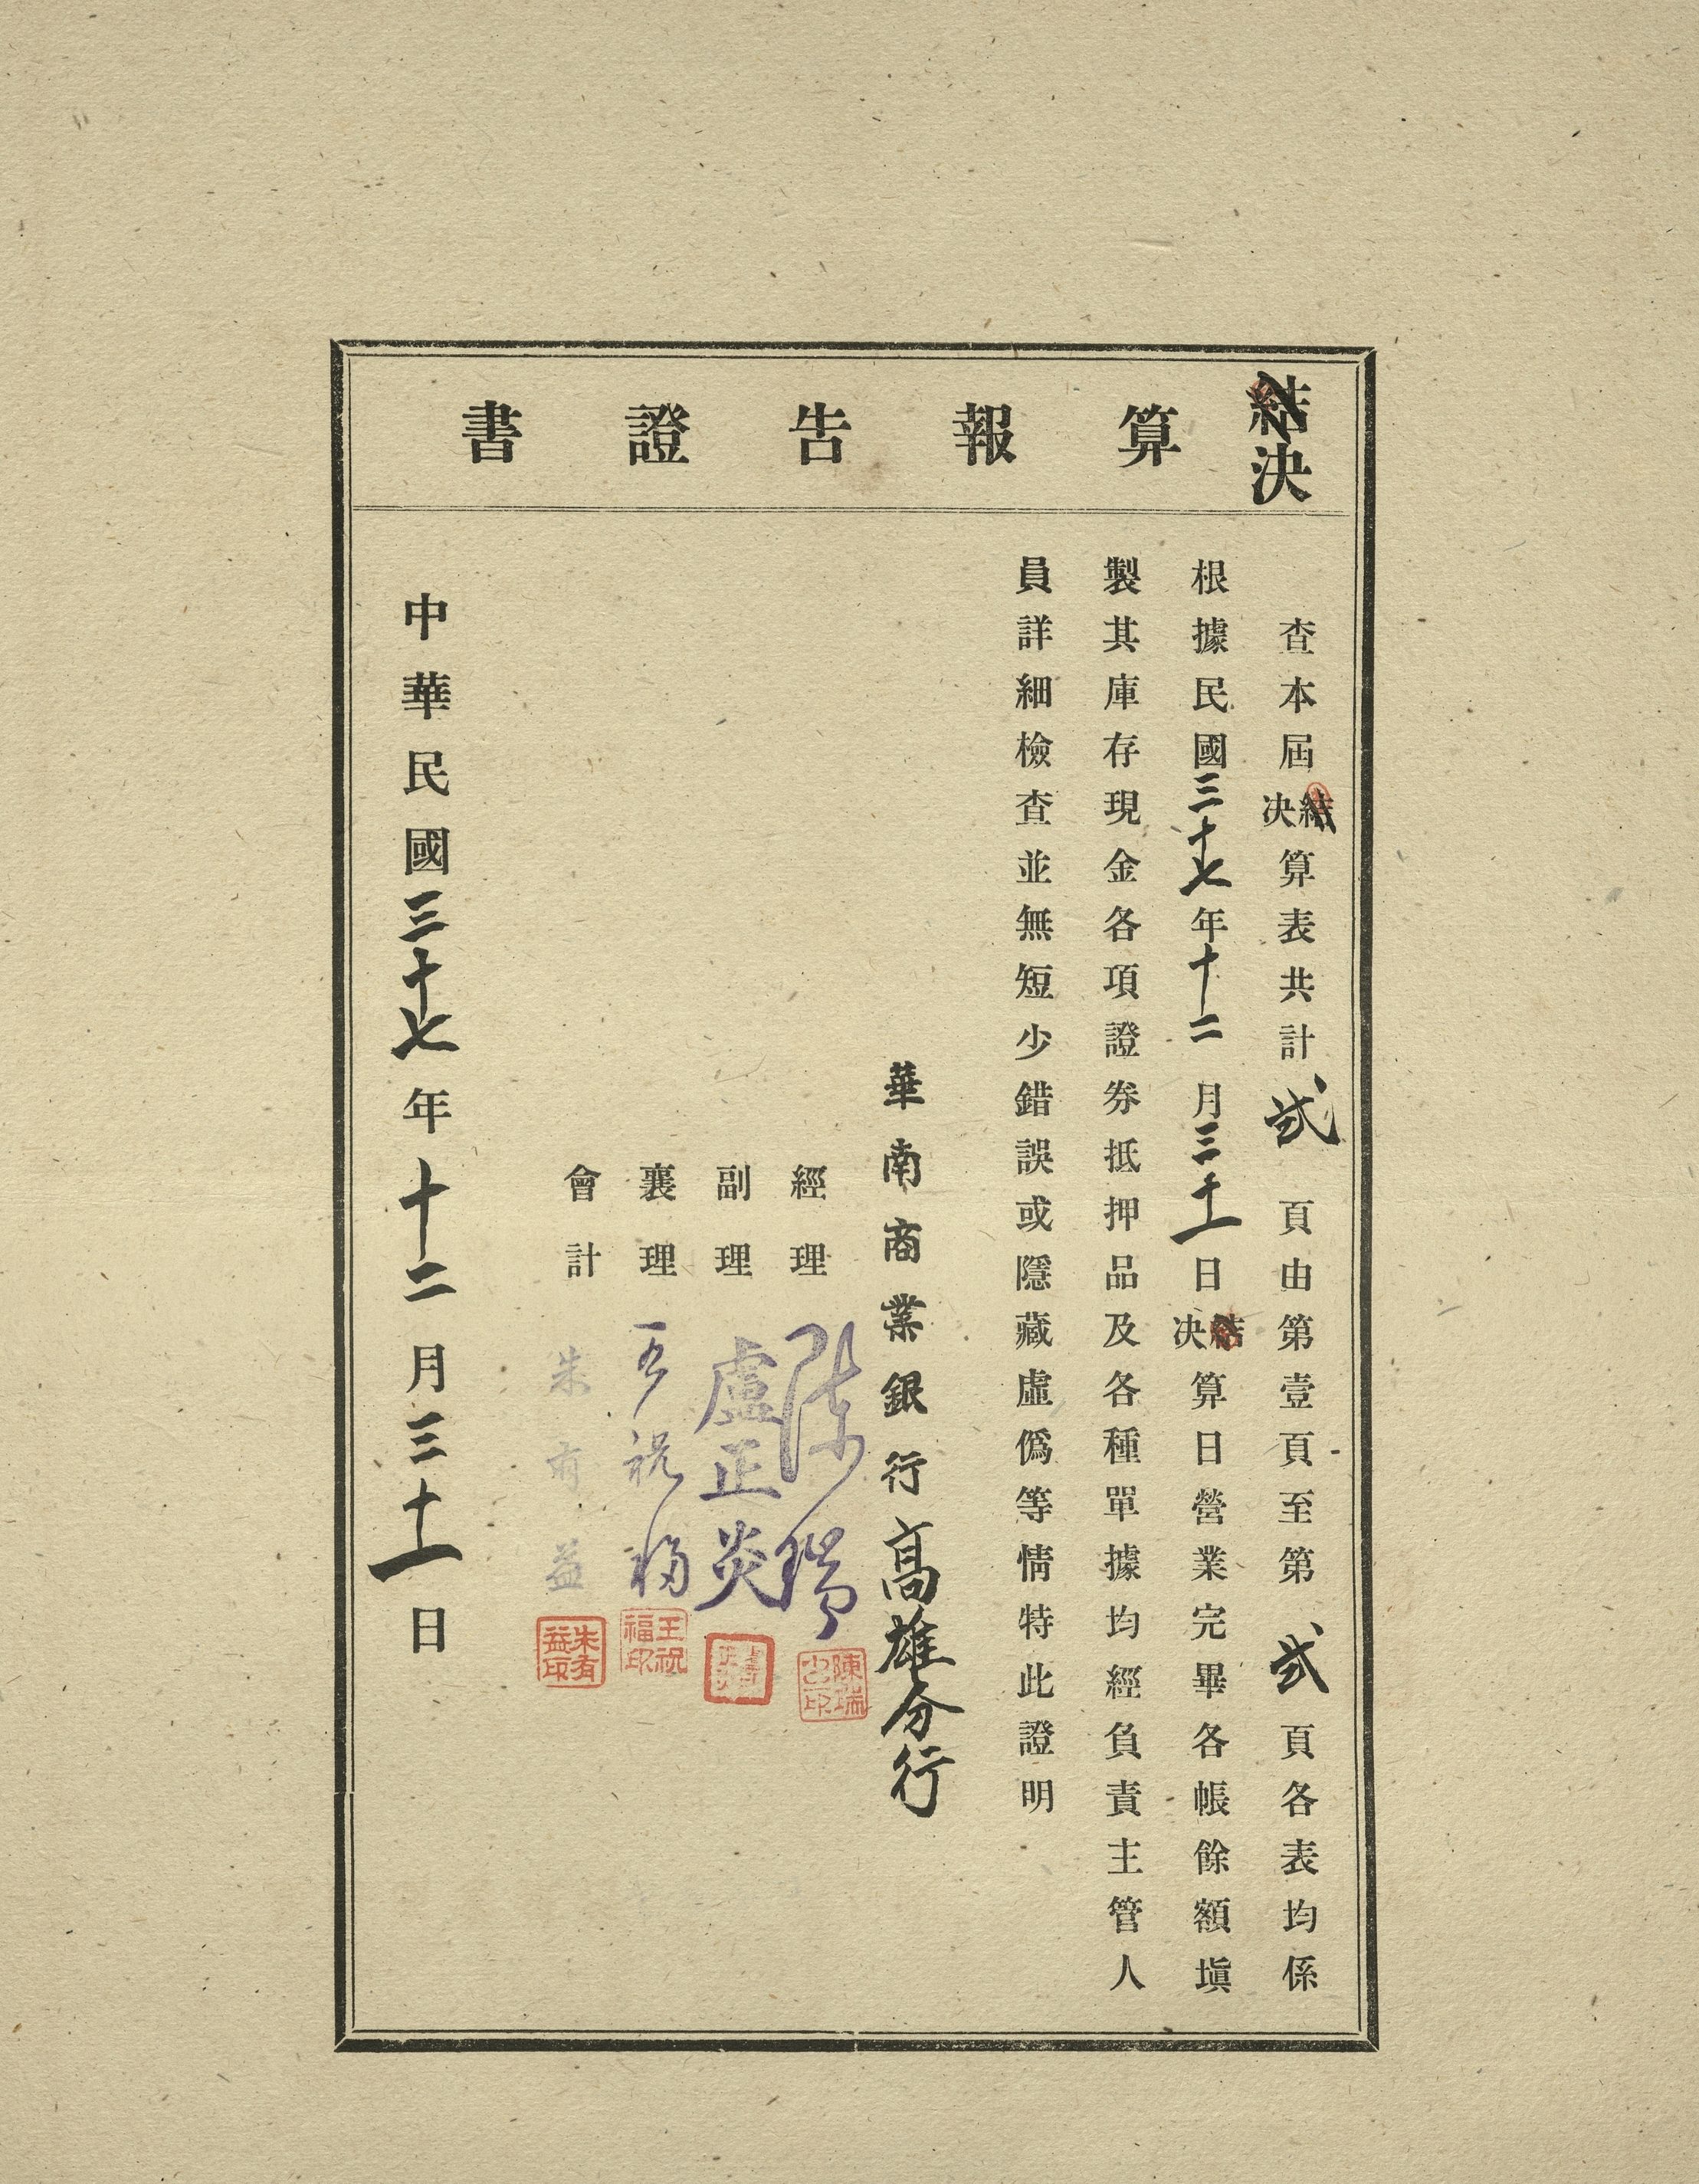 決算報告證書
查本屆決算表共計弍頁由第壹頁至第弍頁各表均係
根據民國三十七年十二月三十一日決算日營業完畢各帳餘額塡
製其庫存現金各項證券抵押品及各種單據均經負責主管人
員詳細檢查並無短少錯誤或隱藏虛僞等情特此證明
華南商業銀行高雄分行
經理 陳瑞
陳瑞印
副理 盧正炎
襄理 王祝福
王祝福印
會計 朱有益
朱有益印
中華民國三十七年十二月三十一日